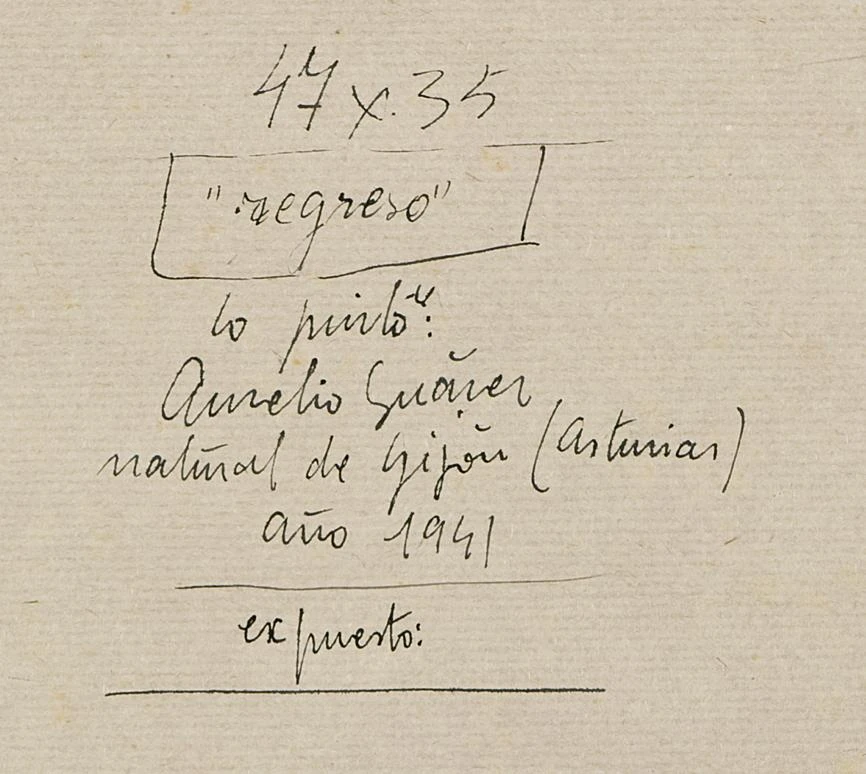 47 x 35
"regreso"
lo pintó:
Aurelio Suárez
natural de Gijón (Asturias)
año 1941
expuesto: